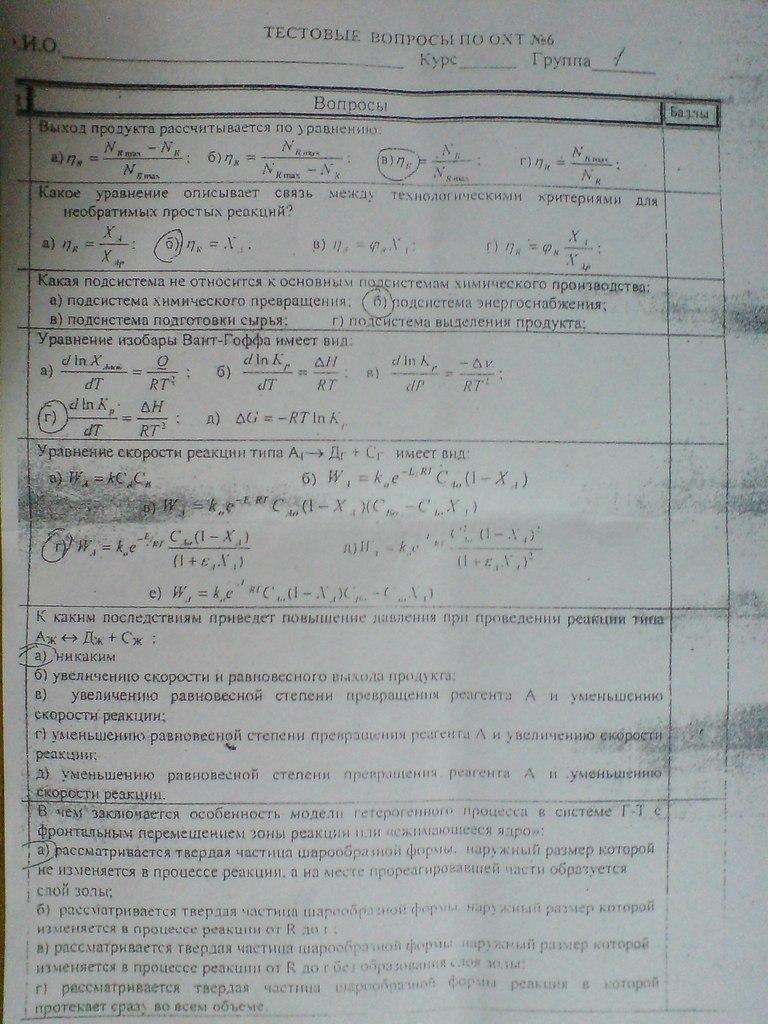 ТЕСТОВЫЕ ВОПРОСЫ ПО ОХТ №6
И.О.__________ Курс______ Группа 1
Вопросы Баллы
Выход продукта рассчитывается по уравнению:
а) η_R = (N_R max − N_R) / N_R max ; б) η_R = N_R max / (N_R max − N_R) ; в) η_R = N_R / N_R max ; г) η_R = N_R max / N_R ;
Какое уравнение описывает связь между технологическими критериями для
необратимых простых реакций?
а) η_R = X_A / X_Ap ; б) η_R = X_A . в) η_R = φ_R X_A ; г) η_R = φ_R X_A / X_Ap ;
Какая подсистема не относится к основным подсистемам химического производства:
а) подсистема химического превращения; б) подсистема энергоснабжения;
в) подсистема подготовки сырья; г) подсистема выделения продукта;
Уравнение изобары Вант-Гоффа имеет вид:
а) d ln X / dT = Q / RT² ; б) d ln K_p / dT = ΔH / RT ; в) d ln K_p / dP = −Δν / RT² ;
г) d ln K_p / dT = ΔH / RT² ; д) ΔG = −RT ln K_p
Уравнение скорости реакции типа Аг → Дг + Сг имеет вид:
а) W_A = kC_A C_B б) W_A = k_o e^(−E/RT) C_Ao (1 − X_A)
в) W_A = k_o e^(−E/RT) C_Ao (1 − X_A)(C_Bo − C_Ao X_A)
г) W_A = k_o e^(−E/RT) C_Ao (1 − X_A) / (1 + ε_A X_A) д) W_A = k_o e^(−E/RT) C²_Ao (1 − X_A)² / (1 + ε_A X_A)²
е) W_A = k_o e^(−E/RT) C_Ao (1 − X_A)(C_Bo − C_Ao X_A)
К каким последствиям приведет повышение давления при проведении реакции типа
Аж ↔ Дж + Сж :
а) никаким
б) увеличению скорости и равновесного выхода продукта;
в) увеличению равновесной степени превращения реагента А и уменьшению
скорости реакции;
г) уменьшению равновесной степени превращения реагента А и увеличению скорости
реакции;
д) уменьшению равновесной степени превращения реагента А и уменьшению
скорости реакции.
В чем заключается особенность модели гетерогенного процесса в системе Г-Т с
фронтальным перемещением зоны реакции или «сжимающееся ядро»:
а) рассматривается твердая частица шарообразной формы, наружный размер которой
не изменяется в процессе реакции, а на месте прореагировавшей части образуется
слой золы;
б) рассматривается твердая частица шарообразной формы, наружный размер которой
изменяется в процессе реакции от R до r ;
в) рассматривается твердая частица шарообразной формы наружный размер которой
изменяется в процессе реакции от R до r без образования слоя золы;
г) рассматривается твердая частица шарообразной формы реакция в которой
протекает сразу во всем объеме.